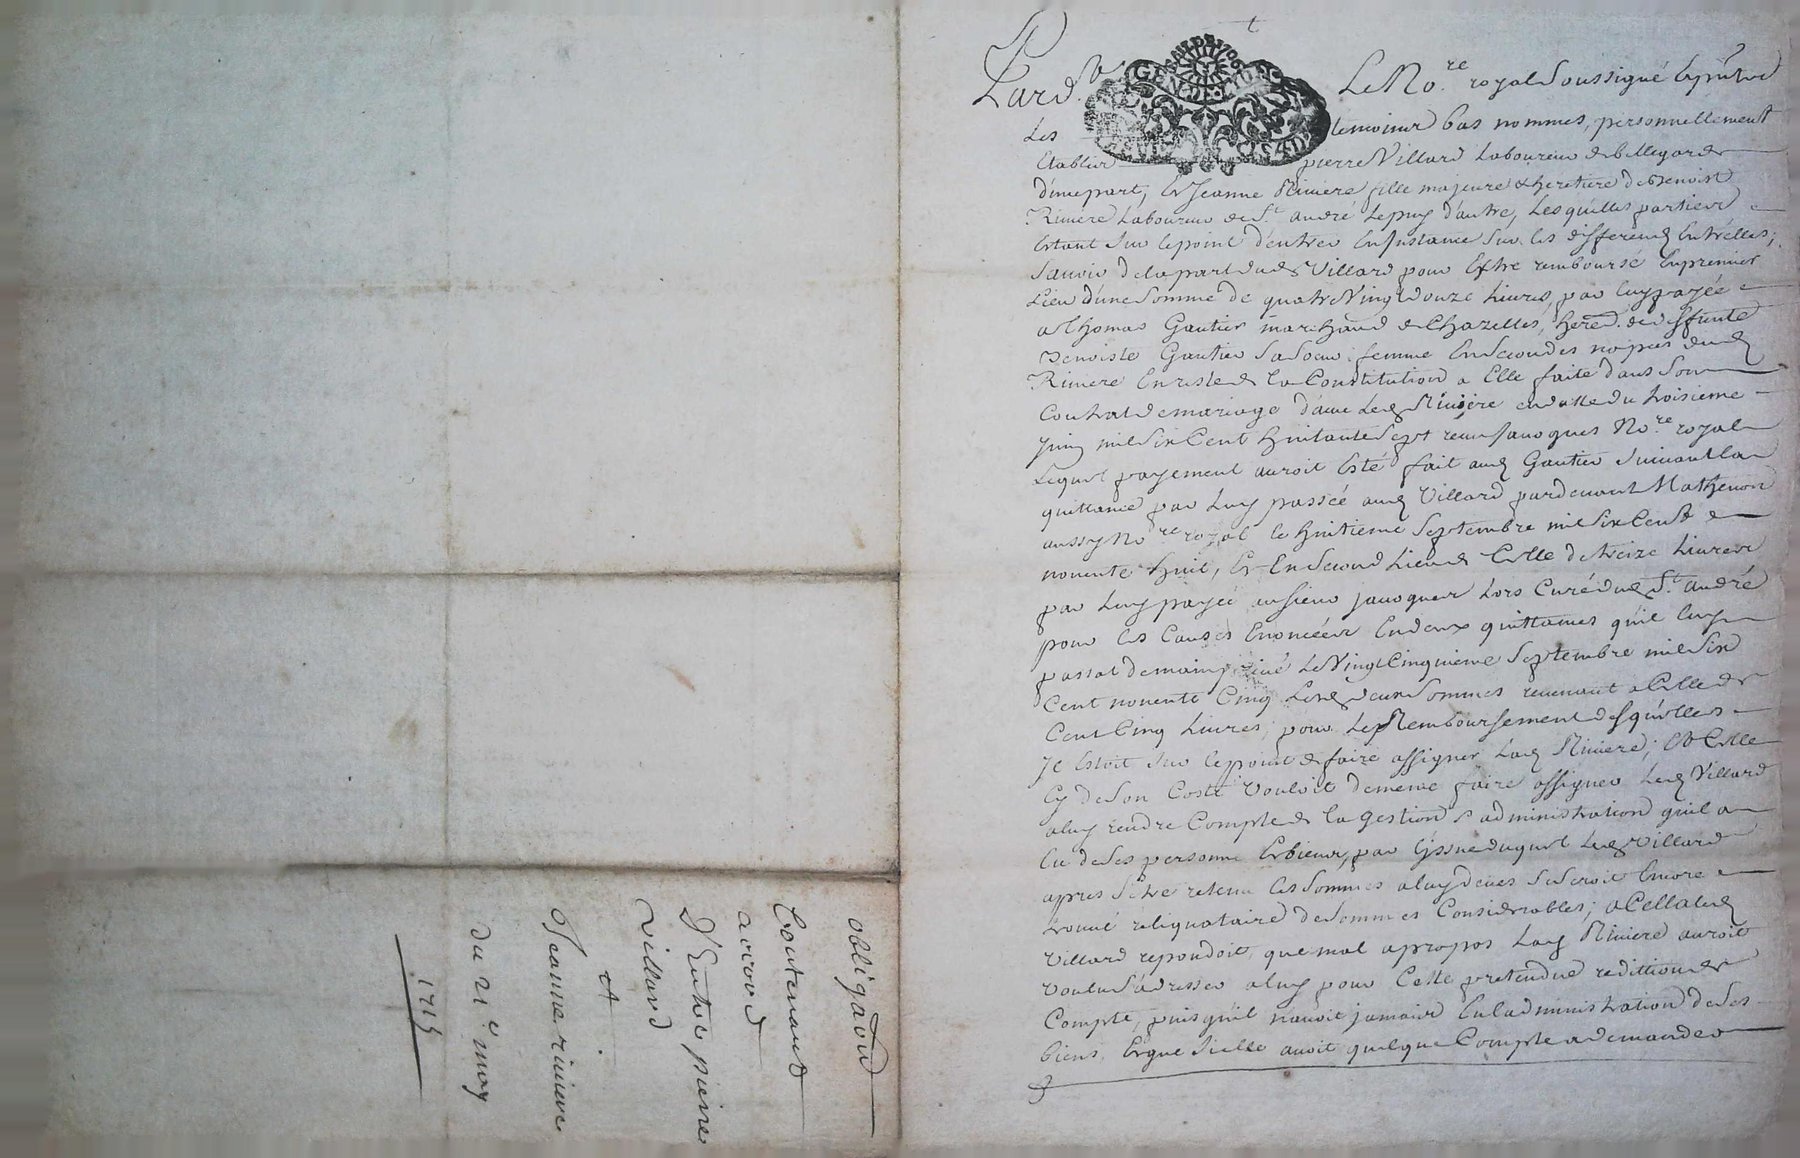 Pard.t
Le No.re royal Soussigné Et pnt.ce
Les temoins bas nommes, personnellement
Etablis pierre Villard Laboureur de bellegarde
d'une part, Et Jeanne Riviere fille majeure & heretiere de Benoist
Riviere Laboureur de S.t andré Le puy d'autre, Lesquelles parties
Estant Sur le point d'entrer En Instance Sur les differens Entr'elles;
Sauoir de la part dud Villard pour Estre remboursé En premier
Lieu d'une Somme de quatre Vingt douze Liures, par luy payée
a Thomas Gautier marchand de Chazelles, hered. de deffunte
Benoiste Gautier Sa Soeur femme En Secondes nopces dud
Riviere En reste de la Constitution a Elle faite dans Son
Contrat de mariage d'auec Led Riviere en datte du troisieme
Juin mil Six Cent huitante Sept receu Jauoques No.re royal
Lequel payement auroit Esté fait aud Gautier Suiuant la
quittance par Luy passée aud Villard pardeuant Mathevon
aussy No.re royal le huitieme Septembre mil Six Cent
nonente huit, Et En Second Lieu de Celle de treize Liures
par Luy payée au Sieur jauoques Lors Curé dud S.t andré
pour les Causes Enoncées En deux quittances qu'il luy
passat de main priué Le Vingt Cinquieme Septembre mil Six
Cent nonente Cinq Lesd deux Sommes reuenant a Celle de
Cent Cinq Liures, pour Le Remboursement desquelles
Il Estoit Sur le point de faire assigner Lad Riviere; Et Celle
Cy de Son Costé Vouloit de meme faire assigner Led Villard
a luy rendre Compte de la gestion & administration qu'il a
Eu de Ses personne Et biens, par L'jssue duquel Led Villard
apres S'etre retenu les Sommes a luy deues Se Seroit Encore
trouué reliquataire de Sommes Considerables; a Cella Led
Villard repondoit, que mal apropos Lad Riviere auroit
Voulu S'adresser a luy pour Cette pretendue reddition de
Compte, puisqu'il n'auoit jamais Eu l'administration de Ses
biens, Et que Si elle auoit quelque Compte a demander
obligaõn
Contenant
accord
D'Entre pierre
Villard
et
Jeanne riuiere
du 21e may
1715